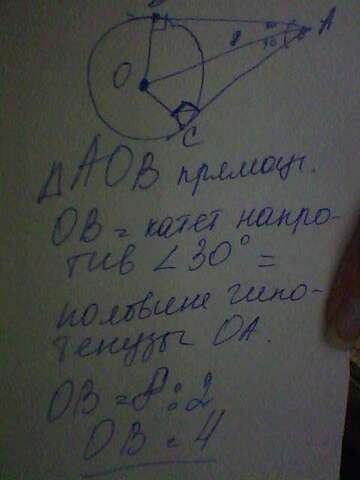 B
A
30
8
30
O
C
△AOB прямоуг.
OB = катет напро-
тив ∠30° =
половине гипо-
тенузы OA.
OB = 8 : 2
OB = 4